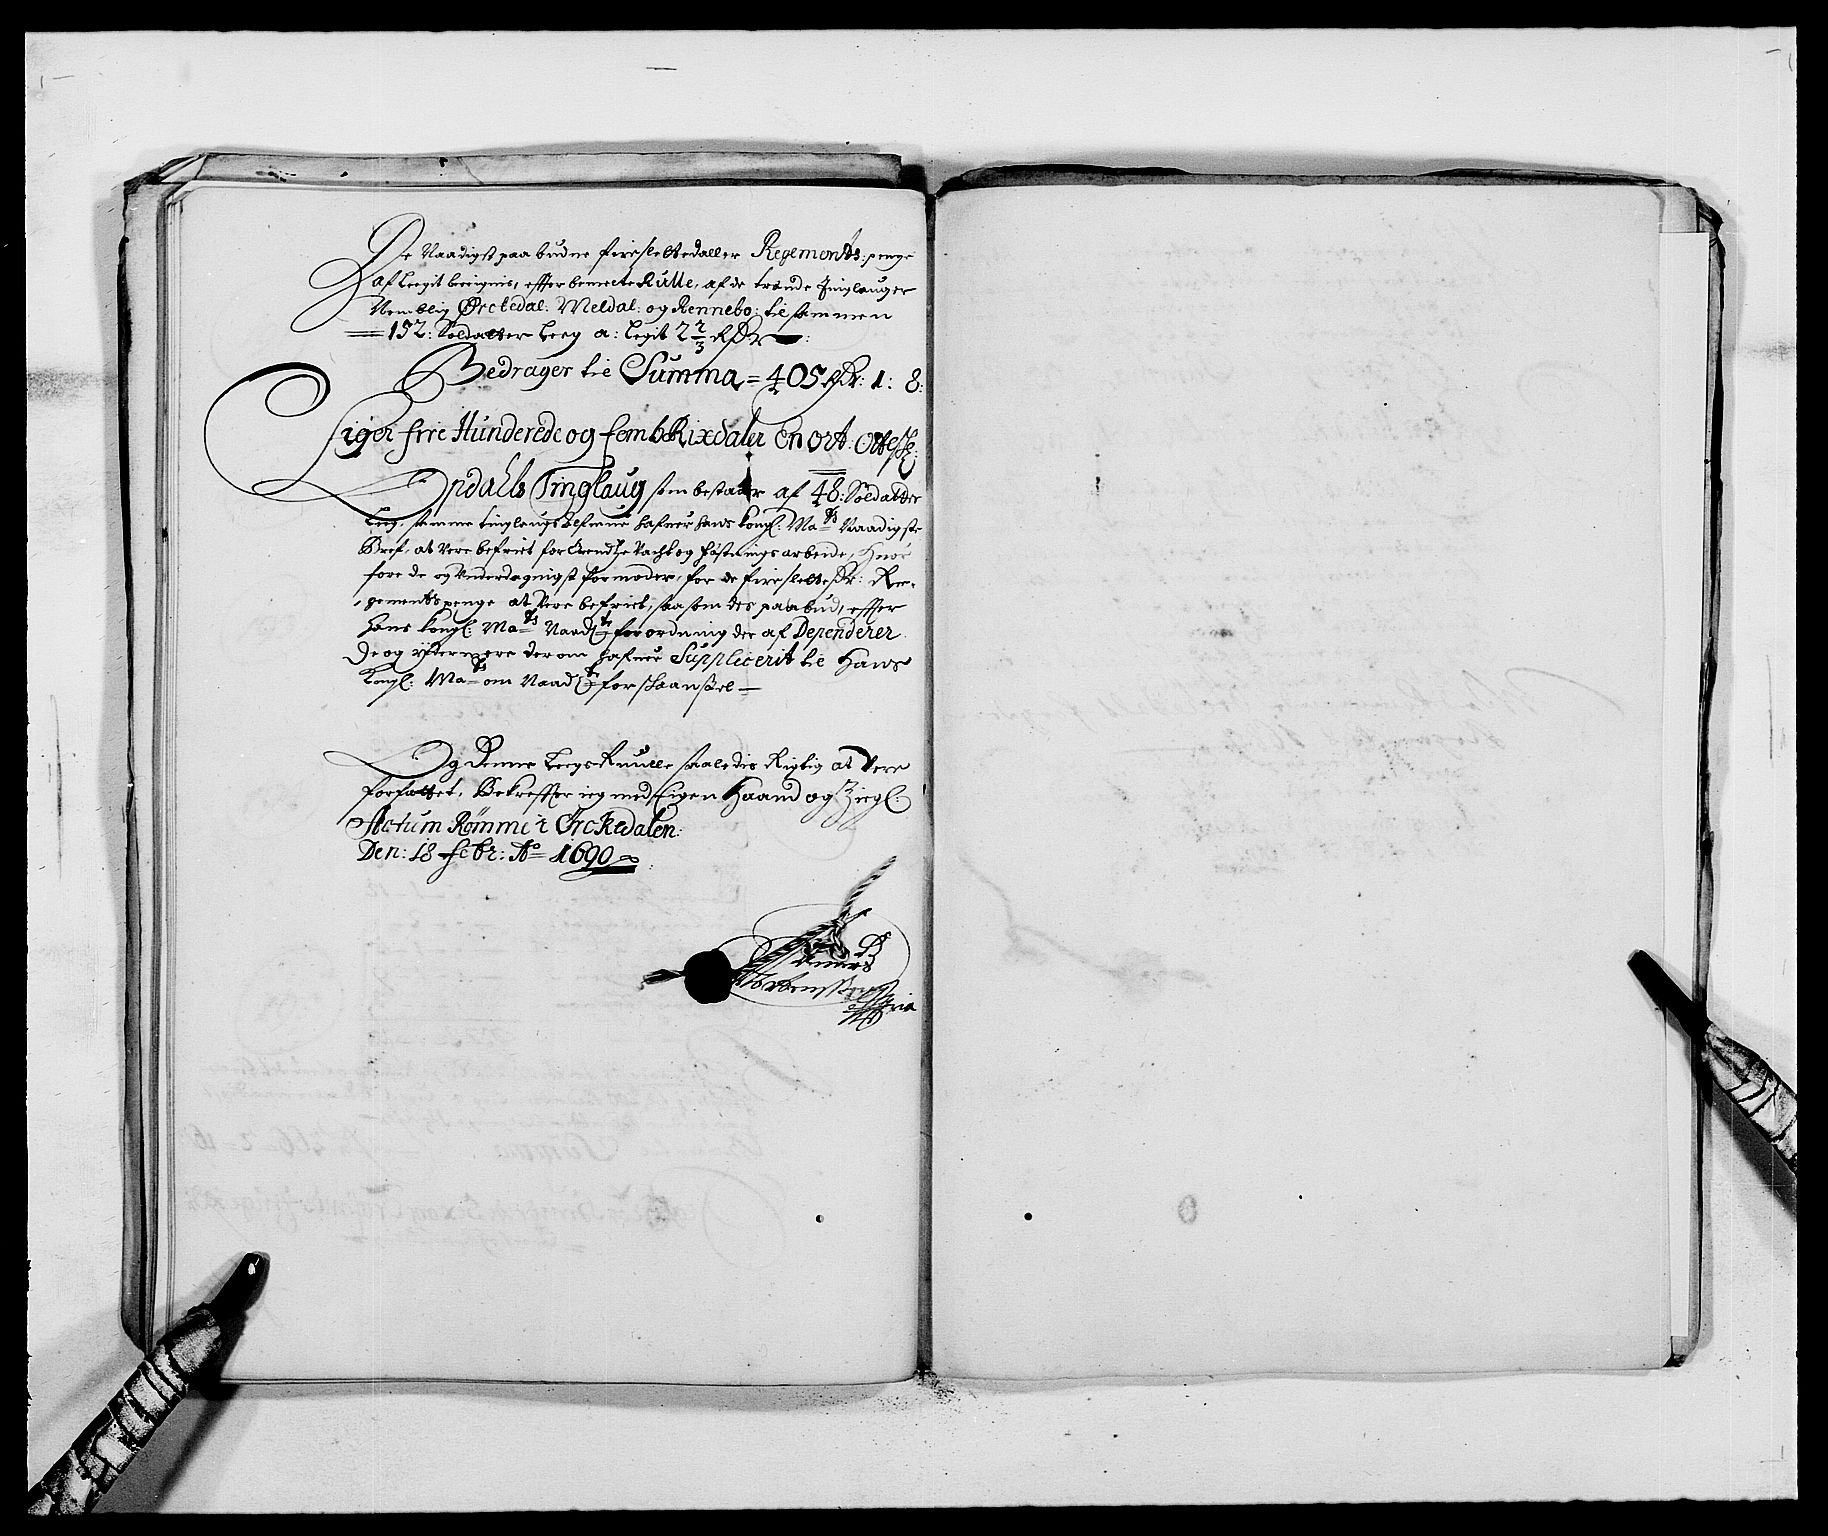 De Naadigst paabudne fire slettedaller Regements penge
af Legit beregnis, effter bemelte Rulle, af de trende Tinglauger
Nemblig Ørckedal: Meldal: og Rennebo: til sammen
152: Soldatter Leeg a: Legit 2 2/3 Rdr
Bedrager till Summa = 405 Rdr: 1: 8:
Siger fiire Hunderede og femb Rixdaler En ort: Otte sk:
Opdahls Tinglaug som bestaar af 48: Soldatter
Leg, samme tinglaugs Almue hafuer hans kongl: Ma:ts Naadigste
Bref, at Vere befriet for Grendtze Vacht og fæstnings arbeide, Huor
fore de og Underdagnigst formoder, for de fire slette dr: Re-
gements penge at Vere befriet, saasom des paabud, effter
Hans kongl: Ma:ts Naad:te forordning der af Dependerer
De og ydermere derom hafuer Supplicerit till Hans
Kongl: Ma:ts om Naad:te forskaansel
Og Denne Legs Ruulle saaledis Rigtig at Vere
forfattet, Bekreffter ieg med Eigen Haand og Ziegl:
Actum Rømme i Ørckedalen:
Den: 18 Febr: Ao 1690